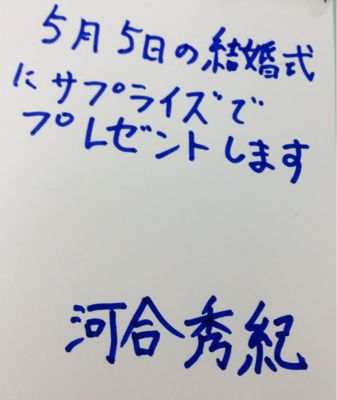 5月5日の結婚式
にサプライズで
プレゼントします
河合秀紀